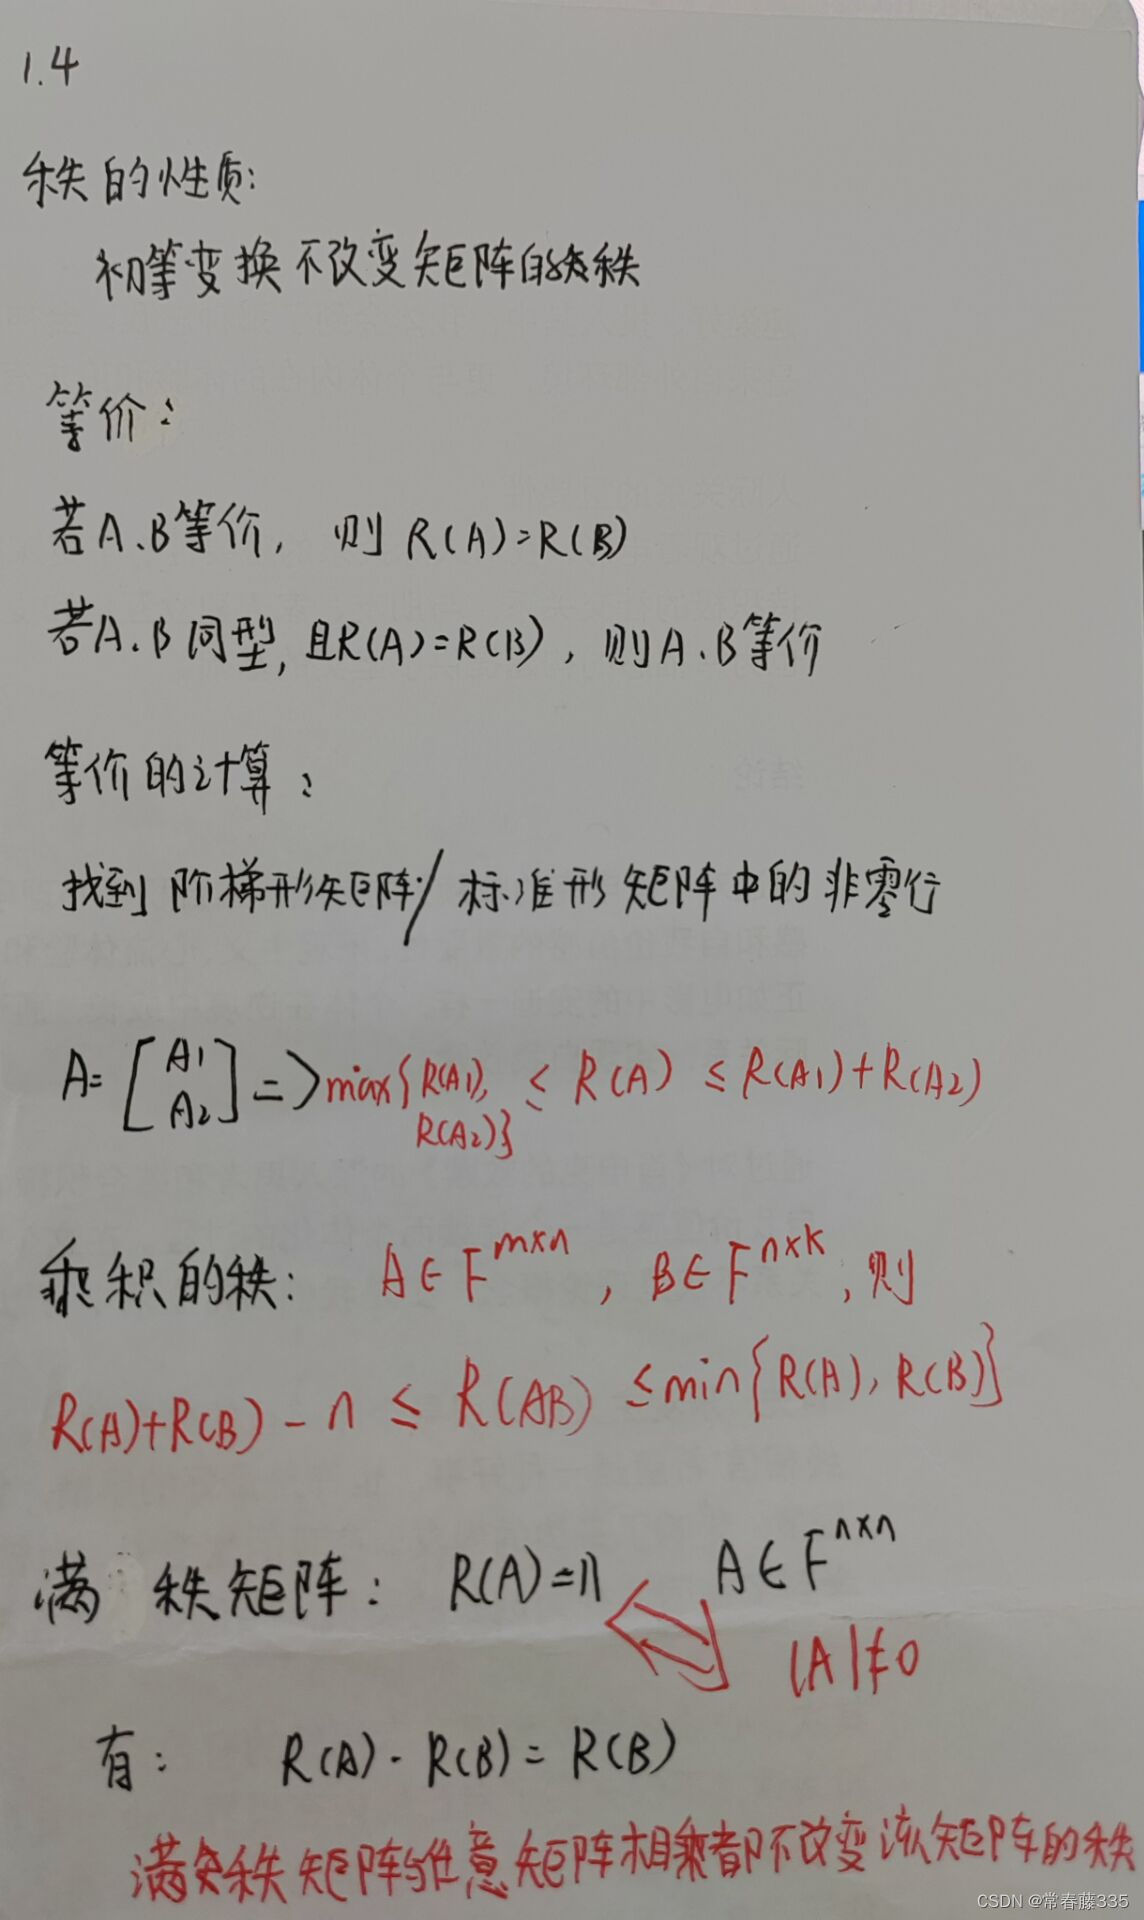 1.4
秩的性质:
初等变换不改变矩阵的秩
等价:
若A、B等价, 则 R(A)=R(B)
若A、B同型, 且R(A)=R(B), 则A、B等价
等价的计算:
找到阶梯形矩阵/标准形矩阵中的非零行
A=[A1 A2]=>max{R(A1), R(A2)} ≤ R(A) ≤ R(A1)+R(A2)
乘积的秩: A∈F^{m×n}, B∈F^{n×k}, 则
R(A)+R(B)-n ≤ R(AB) ≤min{R(A), R(B)}
满秩矩阵: R(A)=n A∈F^{n×n}
|A|≠0
有: R(A)·R(B)=R(B)
满秩矩阵与任意矩阵相乘都不改变该矩阵的秩
CSDN @常春藤335